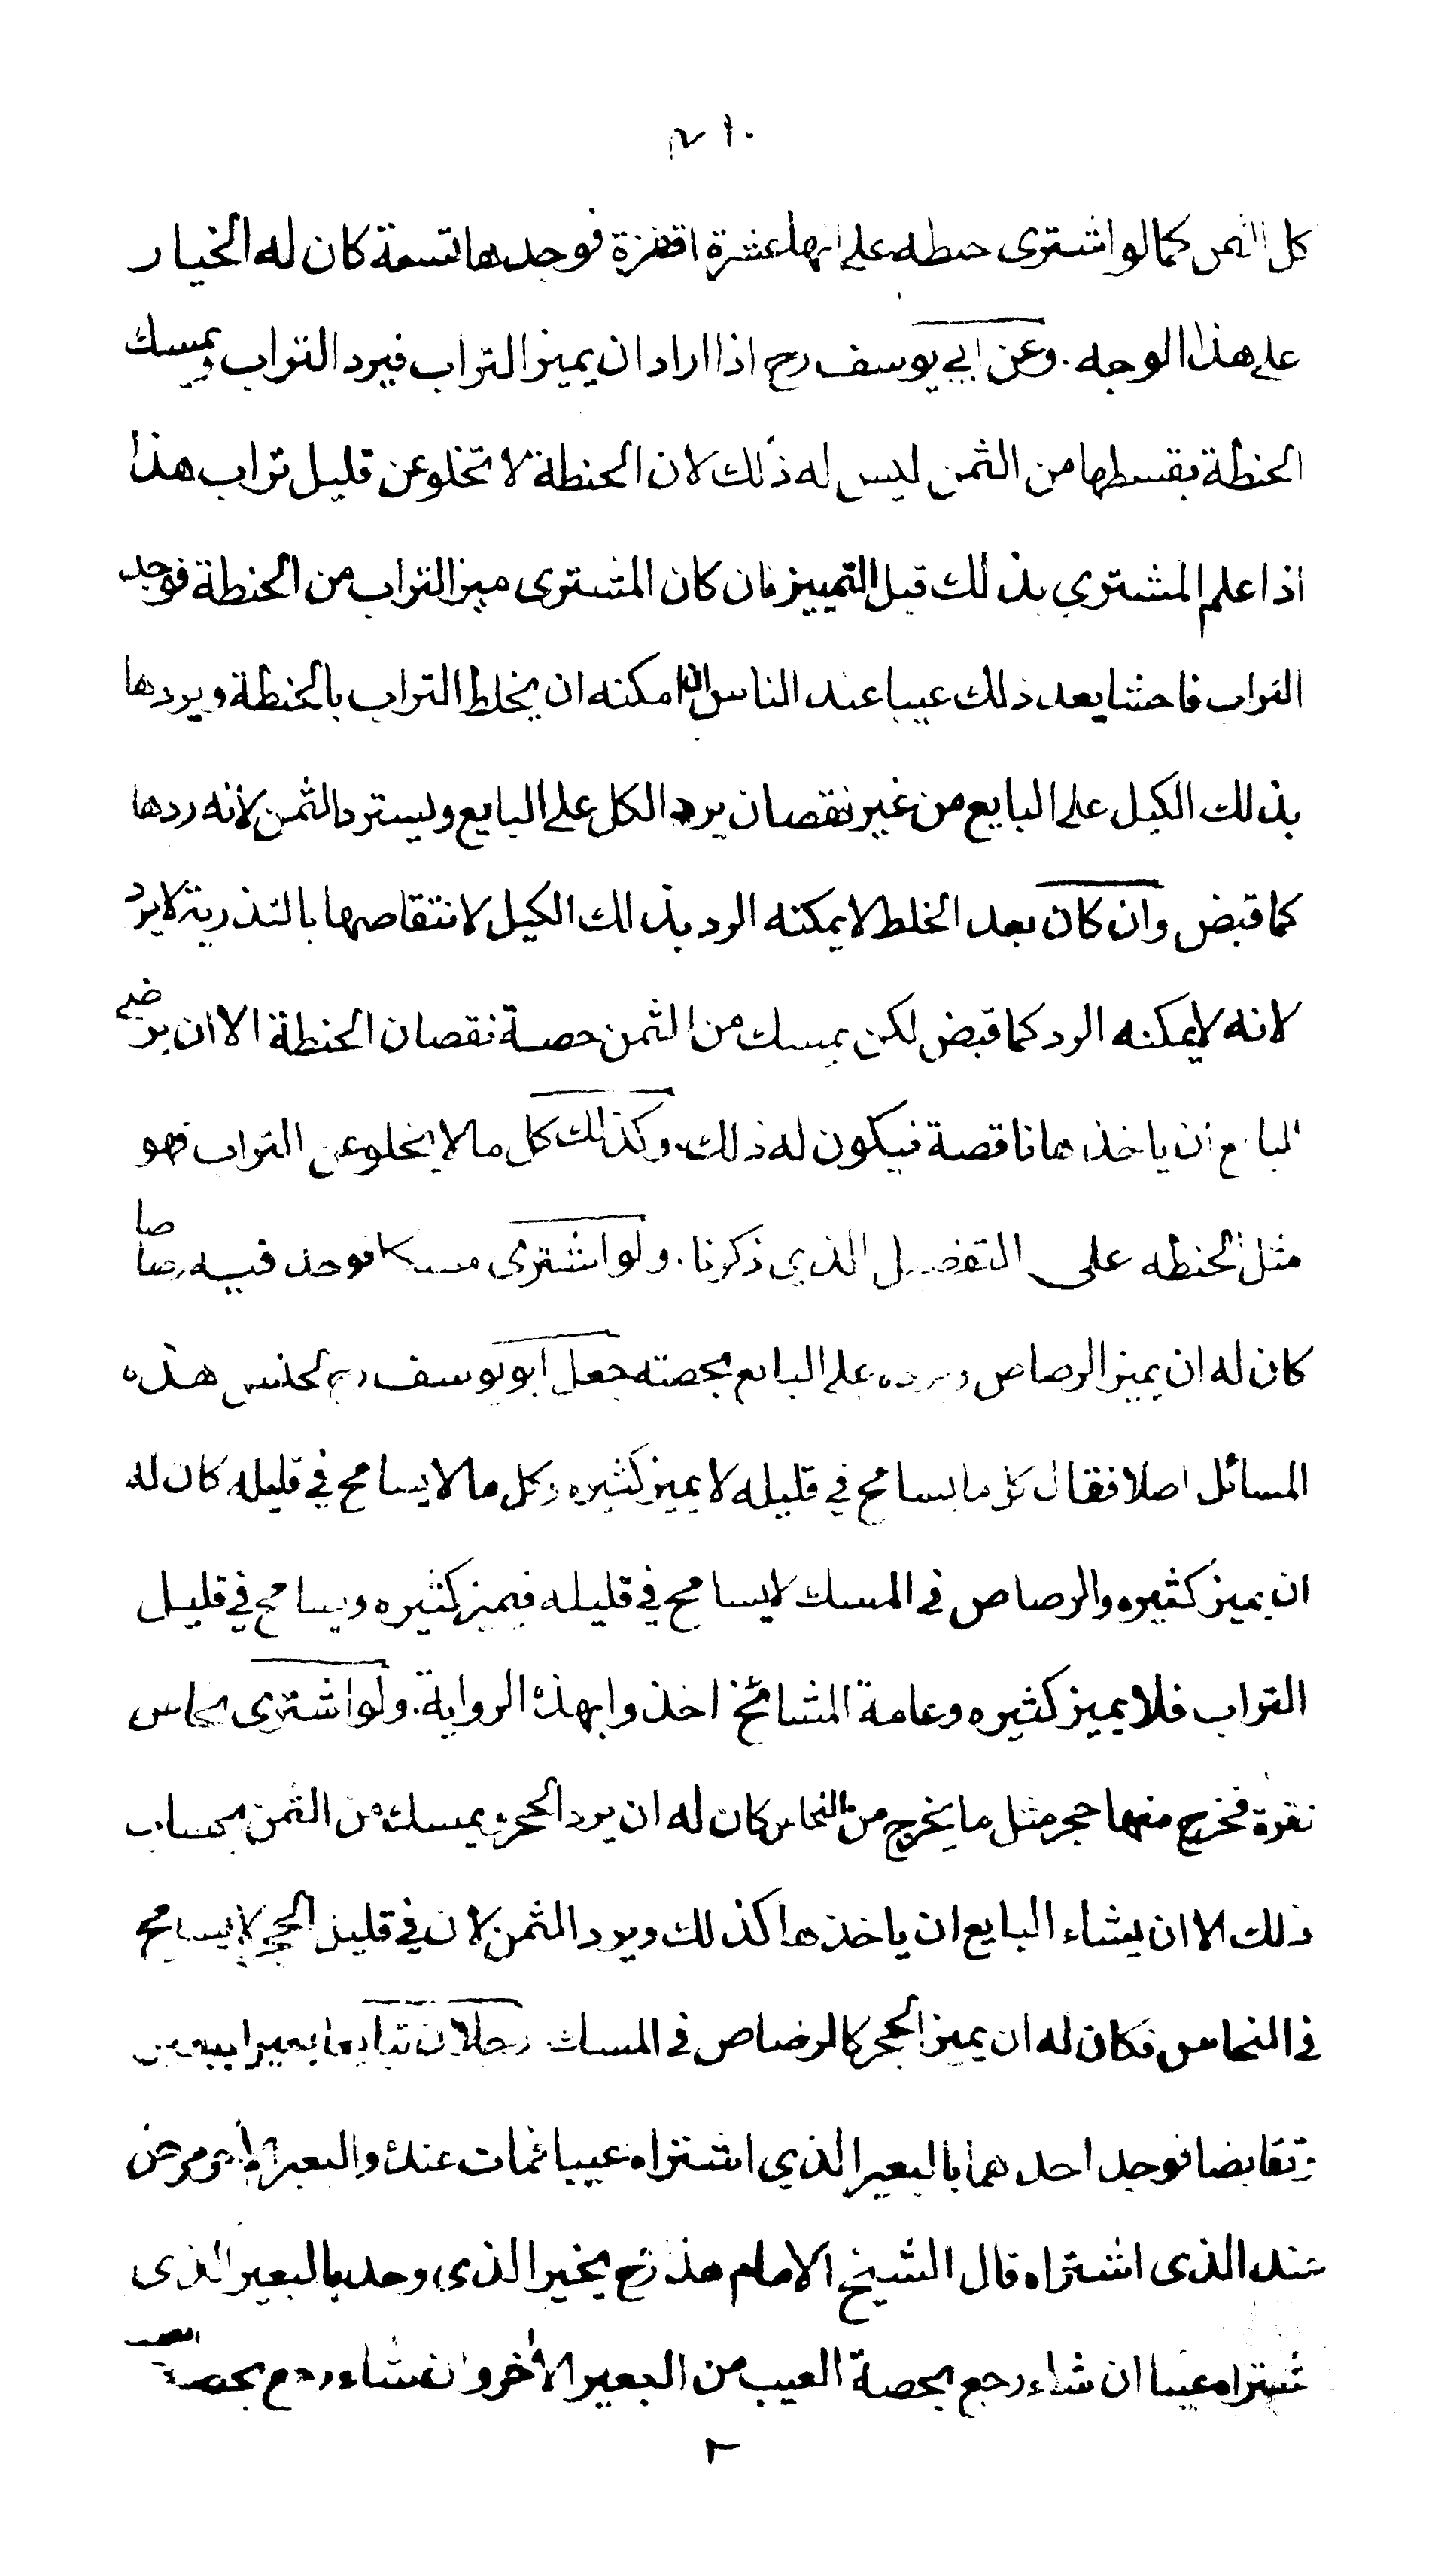 كل الثمن كما لو اشترى حنطه على انها عشرة اقفزة فوجدها تسعة كان له الخيار
على هذا الوجه . وعن ابي يوسف رح اذا اراد ان يميز التراب فيرد التراب ويمسك
الحنطة بقسطها من الثمن ليس له ذلك لان الحنطة لا تخلو عن قليل تراب هذا
اذا علم المشتري بذلك قبل التمييز فان كان المشترى ميز التراب من الحنطة فوجد
التراب فاحشا يعد ذلك عيبا عند الناس ان امكنه ان يخلط التراب بالحنطة ويردها
بذلك الكيل على البايع من غير نقصان يرد الكل على البايع ويسترد الثمن لانه ردها
كما قبض وان كان بعد الخلط لا يمكنه الرد بذلك الكيل لانتقاصها بالتذرية لا يرد
لانه لا يمكنه الرد كما قبض لكن يمسك من الثمن حصة نقصان الحنطة الا ان يرضى
البايع ان ياخذها ناقصة فيكون له ذلك . وكذلك كل ما لا يخلو عن التراب فهو
مثل الحنطه على التفصيل الذي ذكرنا . ولو اشترى مسكا فوجد فيه رصاصا
كان له ان يميز الرصاص ويرده على البايع بحصته جعل ابو يوسف رح لجنس هذه
المسائل اصلا فقال كل ما يسامح في قليله لا يميز كثيره وكل ما لا يسامح في قليله كان له
ان يميز كثيره والرصاص في المسك لا يسامح في قليله فيميز كثيره ويسامح في قليل
التراب فلا يميز كثيره وعامة المشائخ اخذوا بهذه الرواية . ولو اشترى نحاس
نقرة فخرج منها حجر مثل ما يخرج من النحاس كان له ان يرد الحجر ويمسك من الثمن بحساب
ذلك الا ان يشاء البايع ان ياخذها كذلك ويرد الثمن لان في قليل الحجر لا يسامح
في النحاس فكان له ان يميز الحجر كالرصاص في المسك رجلان تبايعا بعيرا ببعير
وتقابضا فوجد احدهما بالبعير الذي اشتراه عيبا فمات عنده والبعير الاخر مرض
عند الذى اشتراه قال الشيخ الامام هذا رح يخير الذي وجد بالبعير الذى
اشتراه عيبا ان شاء رجع بحصة العيب من البعير الاخر وان شاء رجع بحصة